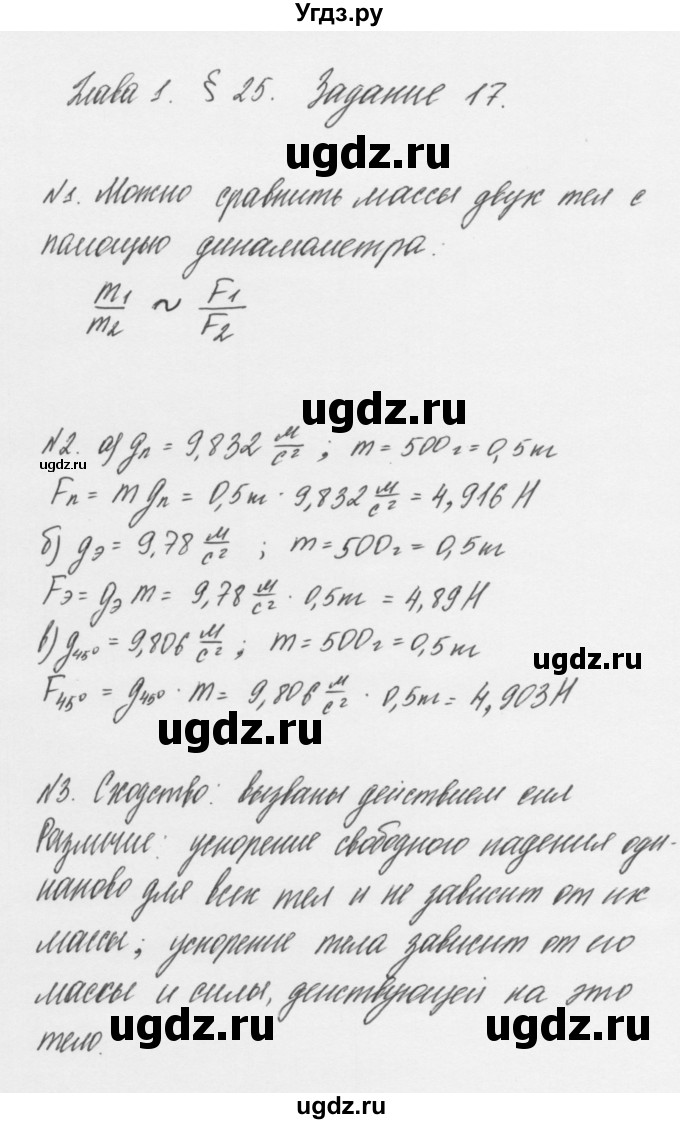 Угдз.ру
Глава 1. § 25. Задание 17.
ugdz.ru
№1. Можно сравнить массы двух тел с
помощью динамометра:
m1/m2 ~ F1/F2
ugdz.ru
№2. а) gп = 9,832 м/с²; m = 500г = 0,5т
Fп = m gп = 0,5т · 9,832 м/с² = 4,916 Н
б) gэ = 9,78 м/с²; m = 500г = 0,5т
Fэ = gэ m = 9,78 м/с² · 0,5т = 4,89Н
в) g45° = 9,806 м/с²; m = 500г = 0,5т
ugdz.ru
F45° = g45° · m = 9,806 м/с² · 0,5т = 4,903Н
ugdz.ru
№3. Сходство: вызваны действием сил
Различие: ускорение свободного падения оди-
наково для всех тел и не зависит от их
массы; ускорение тела зависит от его
массы и силы, действующей на это
тело.
ugdz.ru ugdz.ru
ugdz.ru